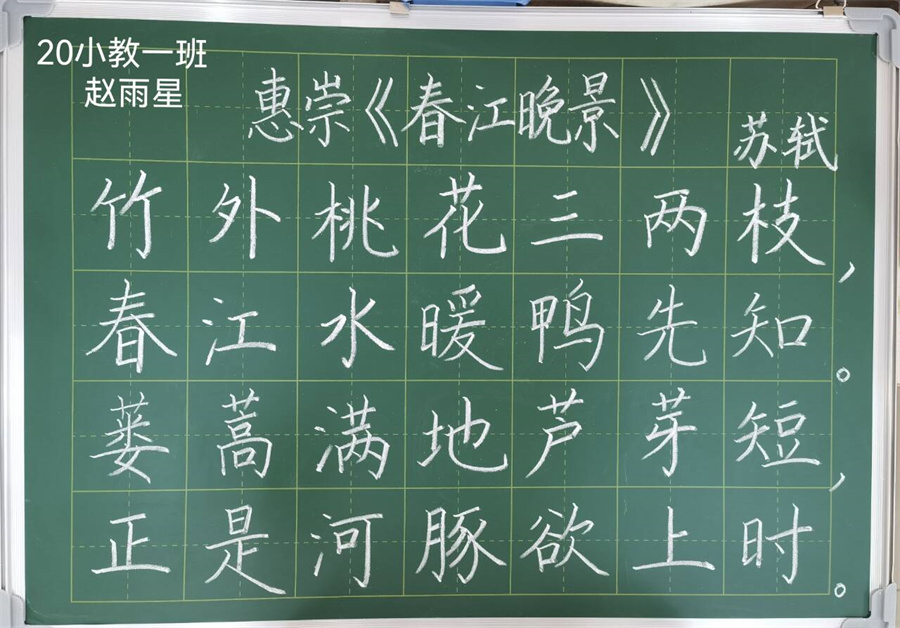 20小教一班
赵雨星
惠崇《春江晚景》
苏轼
竹外桃花三两枝，
春江水暖鸭先知。
蒌蒿满地芦芽短，
正是河豚欲上时。